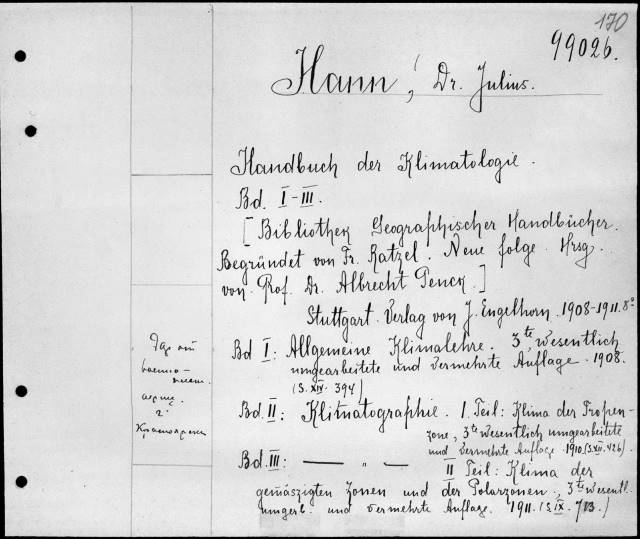 170
99026.
Hann, Dr. Julius.
Handbuch der Klimatologie.
Bd. I-III.
[Bibliothek Geographischer Handbücher.
Begründet von Fr. Ratzel. Neue folge. Hrsg.
von Prof. Dr. Albrecht Penck.]
Stuttgart. Verlag von J. Engelhorn. 1908-1911. 8°
Bd I: Allgemeine Klimalehre. 3te wesentlich
umgearbeitete und vermehrte Auflage. 1908.
(S. XIV. 394)
Bd. II: Klimatographie. I. Teil: Klima der Tropen-
zone, 3te wesentlich umgearbeitete
und vermehrte Auflage. 1910. (S. XII. 426).
Bd. III: — " —
II Teil: Klima der
gemäszigten Zonen und der Polarzonen, 3te wesentl.
umgearb. und vermehrte Auflage. 1911. (S. IX. 713.)
Дар
военно-
г.